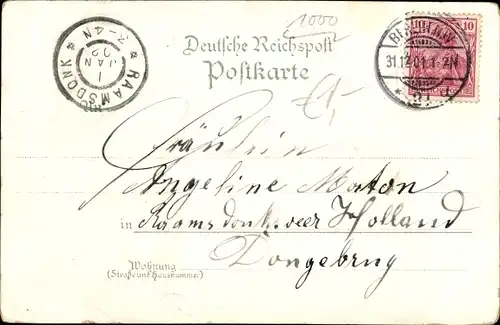 1000
Deutsche Reichspost
Postkarte
RAAMSDONK
1
JAN
02
3-4N
10
31.12.01.1-2N
Fräulein
Angeline Maton
in Raamsdonksveer Holland
Dongebrug
Wohnung
(Straße und Hausnummer)